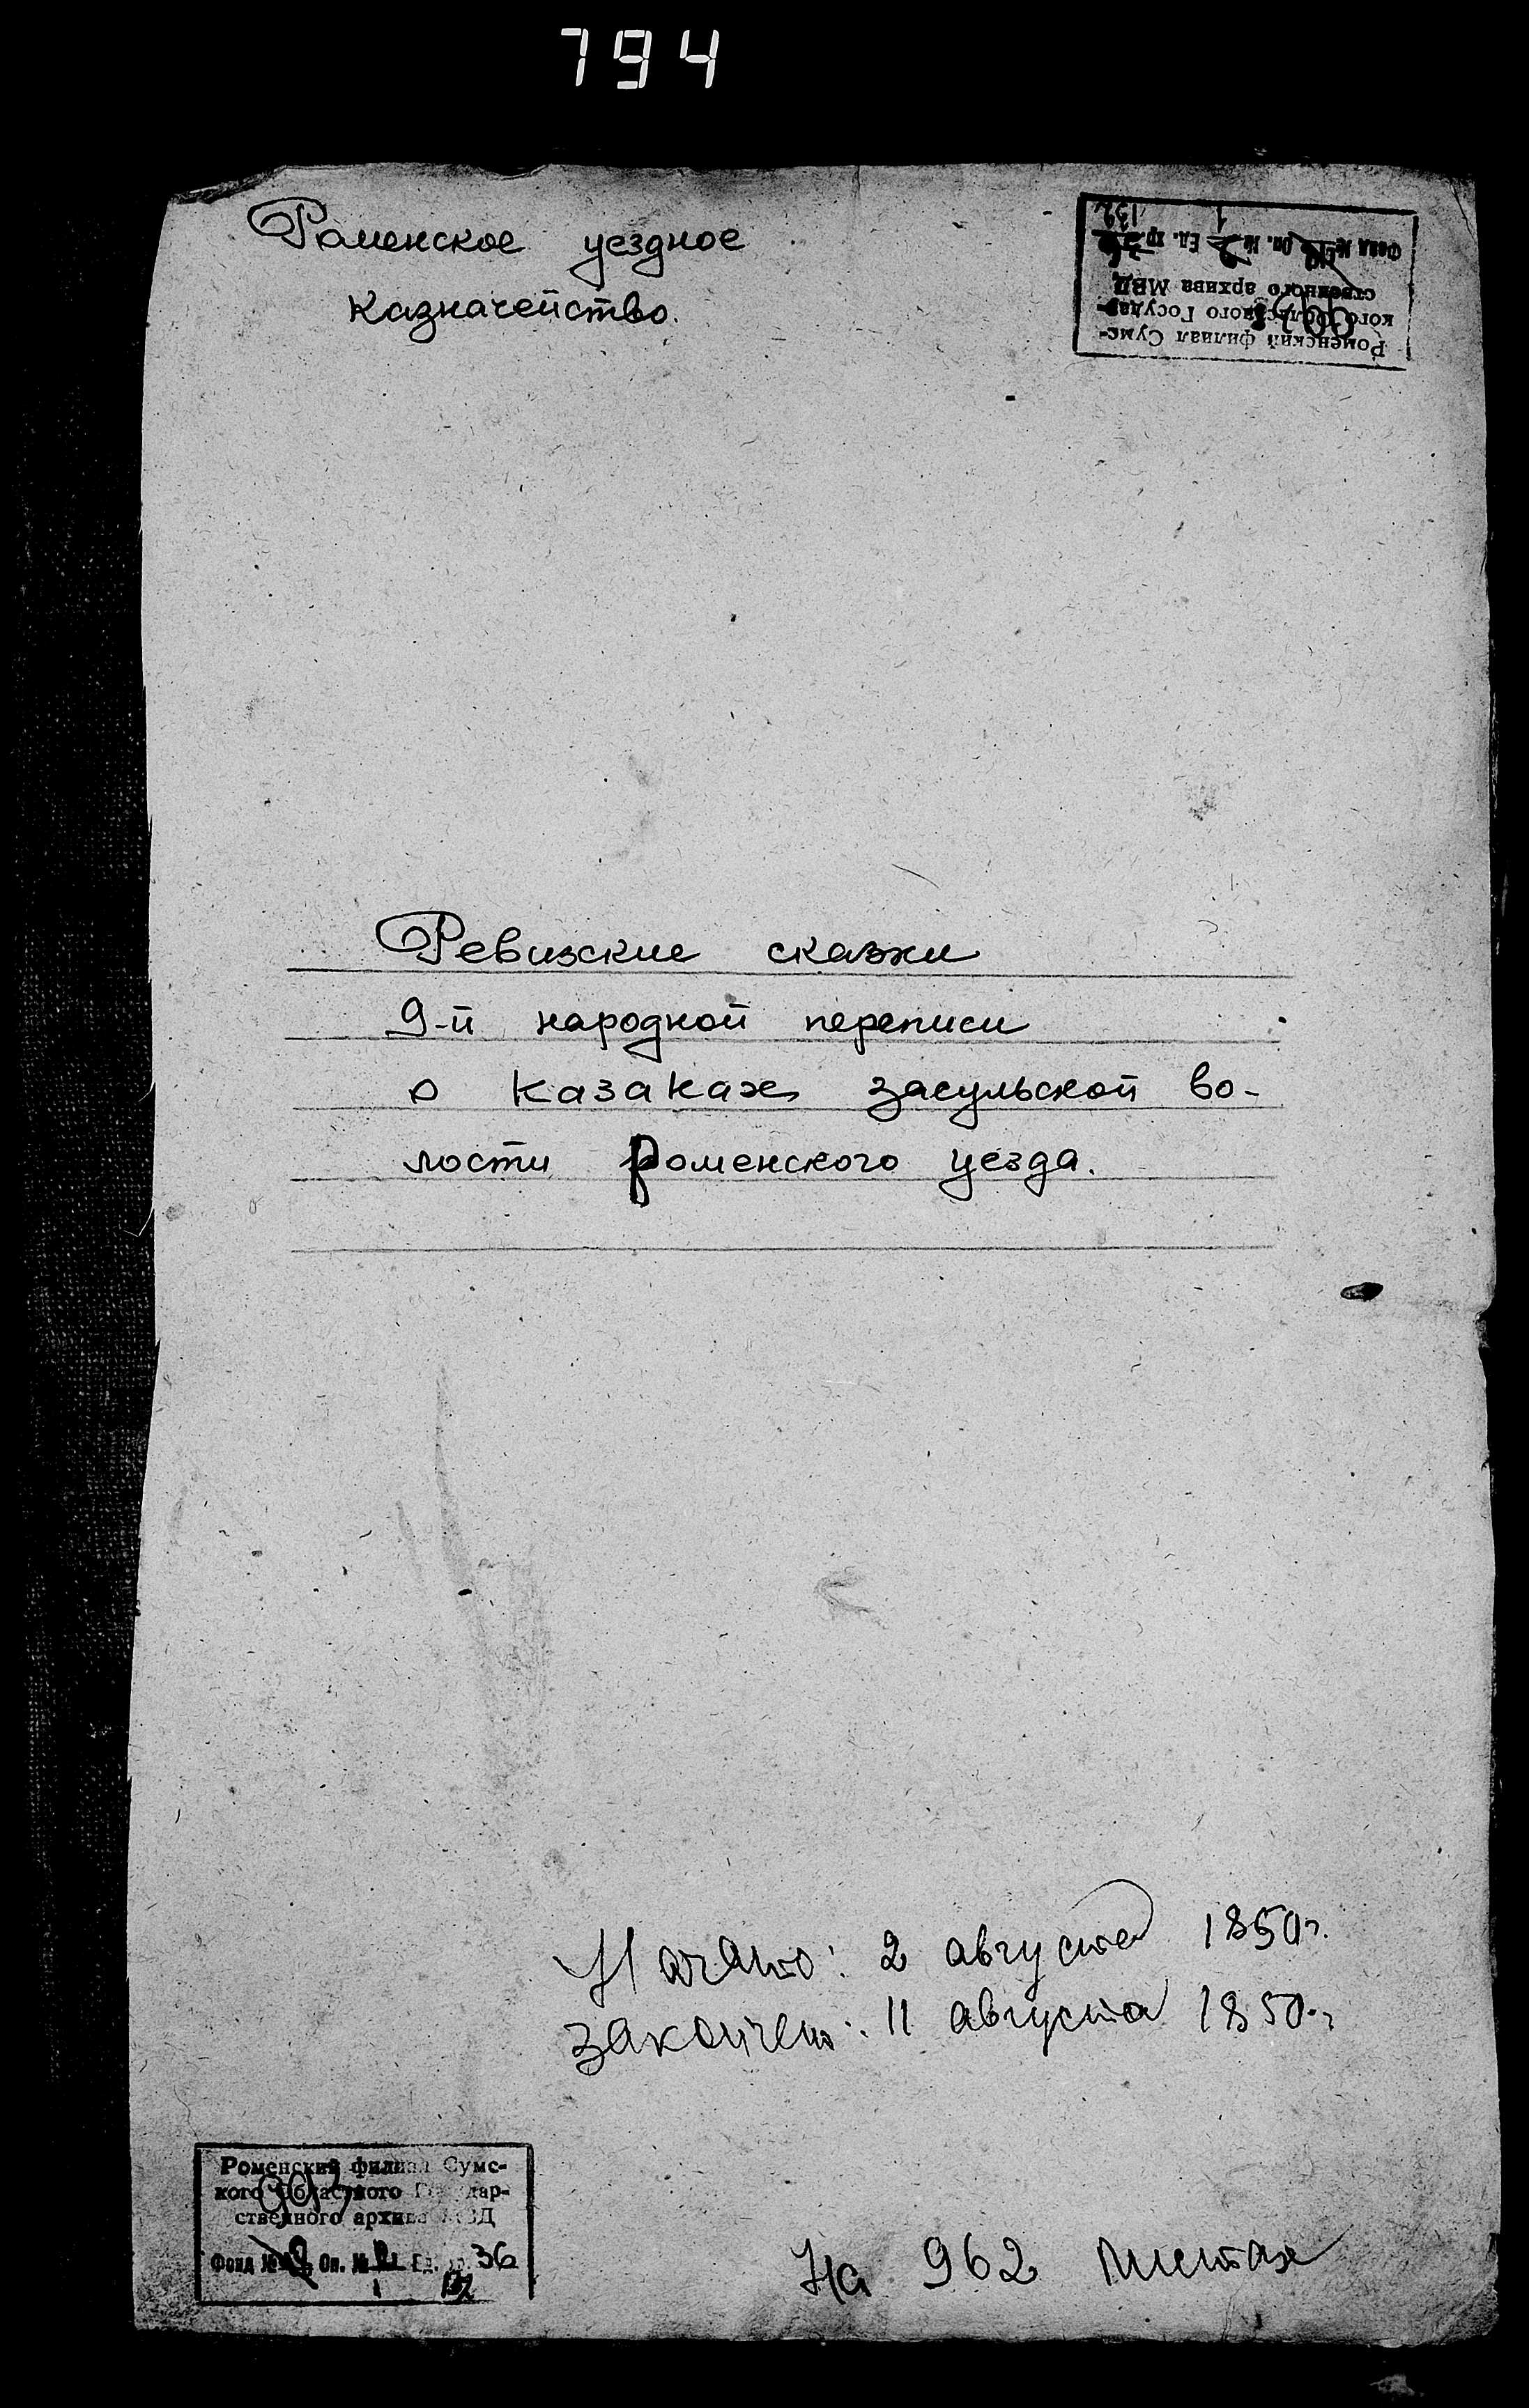 794
Роменское уездное
казначейство.
Роменский филиал Сумс-
кого Областного Государ-
ственного архива МВД
Фонд № Оп. № 2 Ед. хр.
1 132
Ревизские сказки
9-й народной переписи
о казаках засульской во-
лости роменского уезда.
Начато: 2 августа 1850 г.
закончено: 11 августа 1850 г.
Роменский филиал Сумс-
кого Областного Государ-
ственного архива МВД
Фонд № Оп. № Ед. хр. 36
1 132
На 962 листах